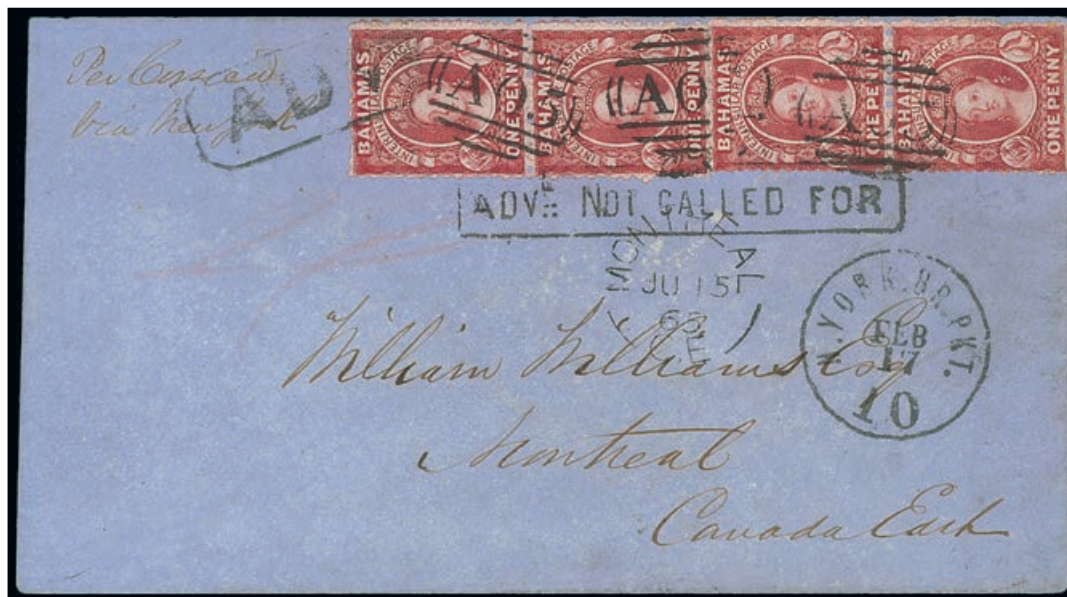 Per Corsica
via New York
AD
BAHAMAS INTERINSULAR POSTAGE ONE PENNY
BAHAMAS INTERINSULAR POSTAGE ONE PENNY
BAHAMAS INTERINSULAR POSTAGE ONE PENNY
BAHAMAS INTERINSULAR POSTAGE ONE PENNY
A05
A0
A
ADV. NOT CALLED FOR
MONTREAL
JU 15
63
N. YORK. BR. PKT.
FEB
17
10
William Williams Esq
Montreal
Canada East